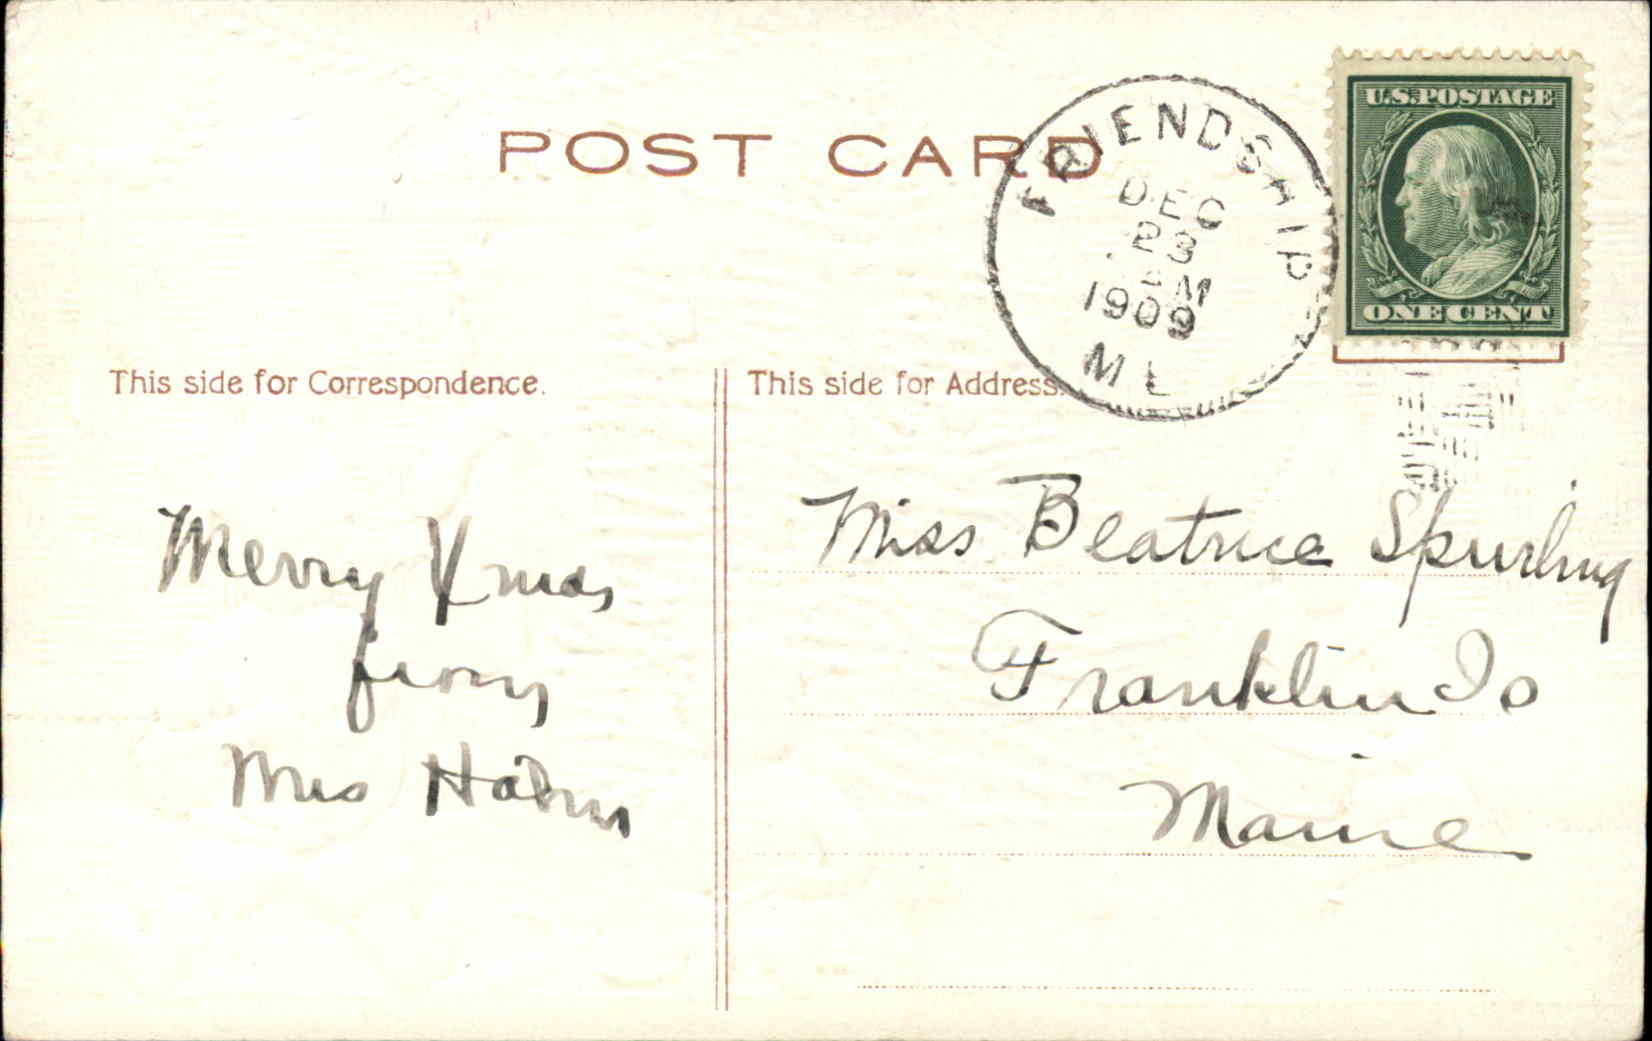 POST CARD
FRIENDSHIP
DEC
23
AM
1909
ME
U.S. POSTAGE
ONE CENT
This side for Correspondence.
This side for Address.
Merry Xmas
from
Mrs
Miss Beatrice Spurling
Franklin
Maine